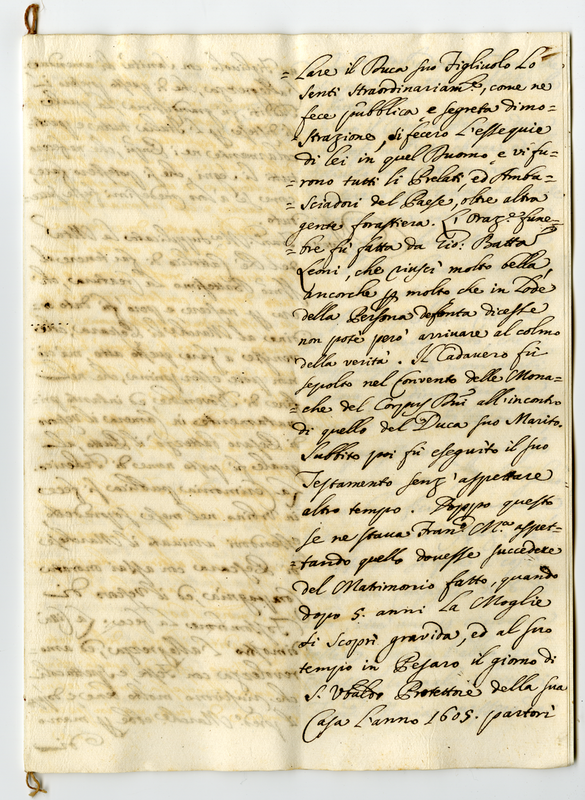 = Lare il Duca suo Figliuolo Lo
senti straordinariam.te, come ne
fece pubblica e segreta dimo=
=strazione, si fecero L'essequie
di lei in quel Duomo, e vi fu=
=rono tutti li Prelati, ed Amba=
=sciadori del Paese, oltre altra
gente forastiera. L'Oraz.e fune=
=bre fù fatta da Gio: Batta
Leoni, che riuscì molto bella,
ancorche p molto che in Lode
della Persona defonta dicesse
non potè però arrivare al colmo
della verità. Il Cadavero fù
sepolto nel Convento delle Mona=
=che del Corpus Dni all'incontro
di quello del Duca suo Marito.
Subbito poi fù eseguito il suo
Testamento senz'aspettare
altro tempo. Doppo questo
se ne stava Fran.o M.a aspet=
=tando quello dovesse succedere
del Matrimonio fatto, quando
dopo 5. anni La Moglie
si scoprì gravida, ed al suo
tempo in Pesaro il giorno di
S. Ubaldo Protettore della sua
Casa L'anno 1605. partorì